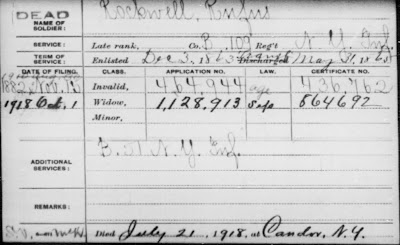 DEAD
NAME OF SOLDIER: Rockwell, Rufus
SERVICE: Late rank, Co. B, 109 Reg't N. Y. Inf.
TERM OF SERVICE: Enlisted Dec 3, 1863 Discharged May 31, 1865
DATE OF FILING. CLASS. APPLICATION NO. LAW. CERTIFICATE NO.
1882 Nov. 13 Invalid, 464,944 436,762
1918 Oct, 1 Widow, 1,128,913 Sep 864692
Minor,
ADDITIONAL SERVICES: B. N. Y. Inf.
REMARKS:
Died July 21, 1918, at Candor, N.Y.